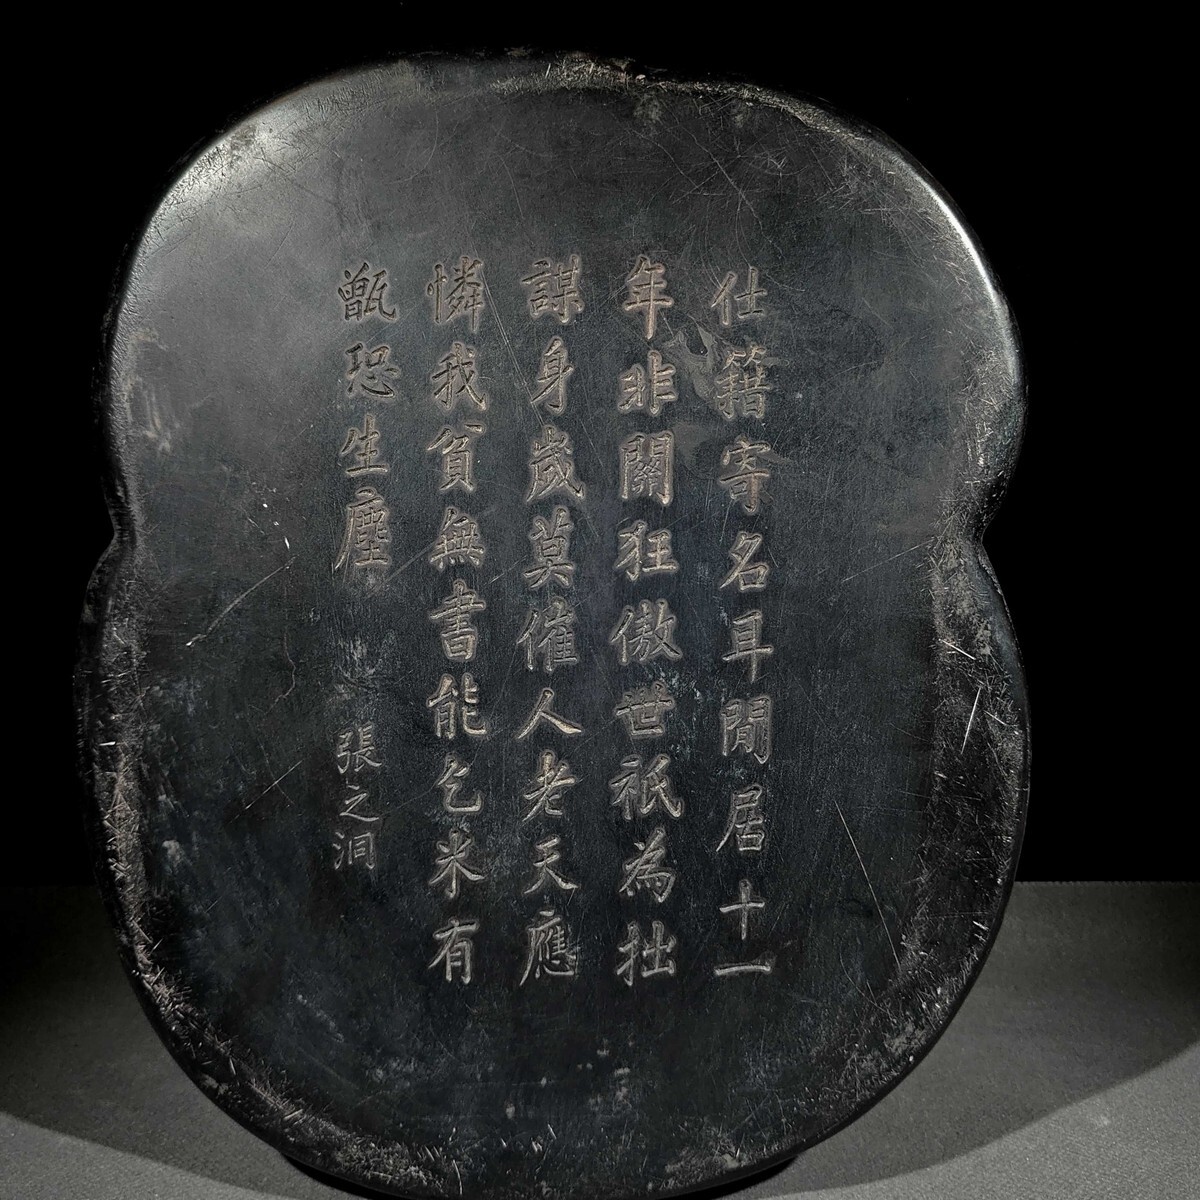 仕籍寄名耳閒居十一
年非關狂傲世祇為拙
謀身歲莫催人老天應
憐我貧無書能乞米有
甑恐生塵
張之洞